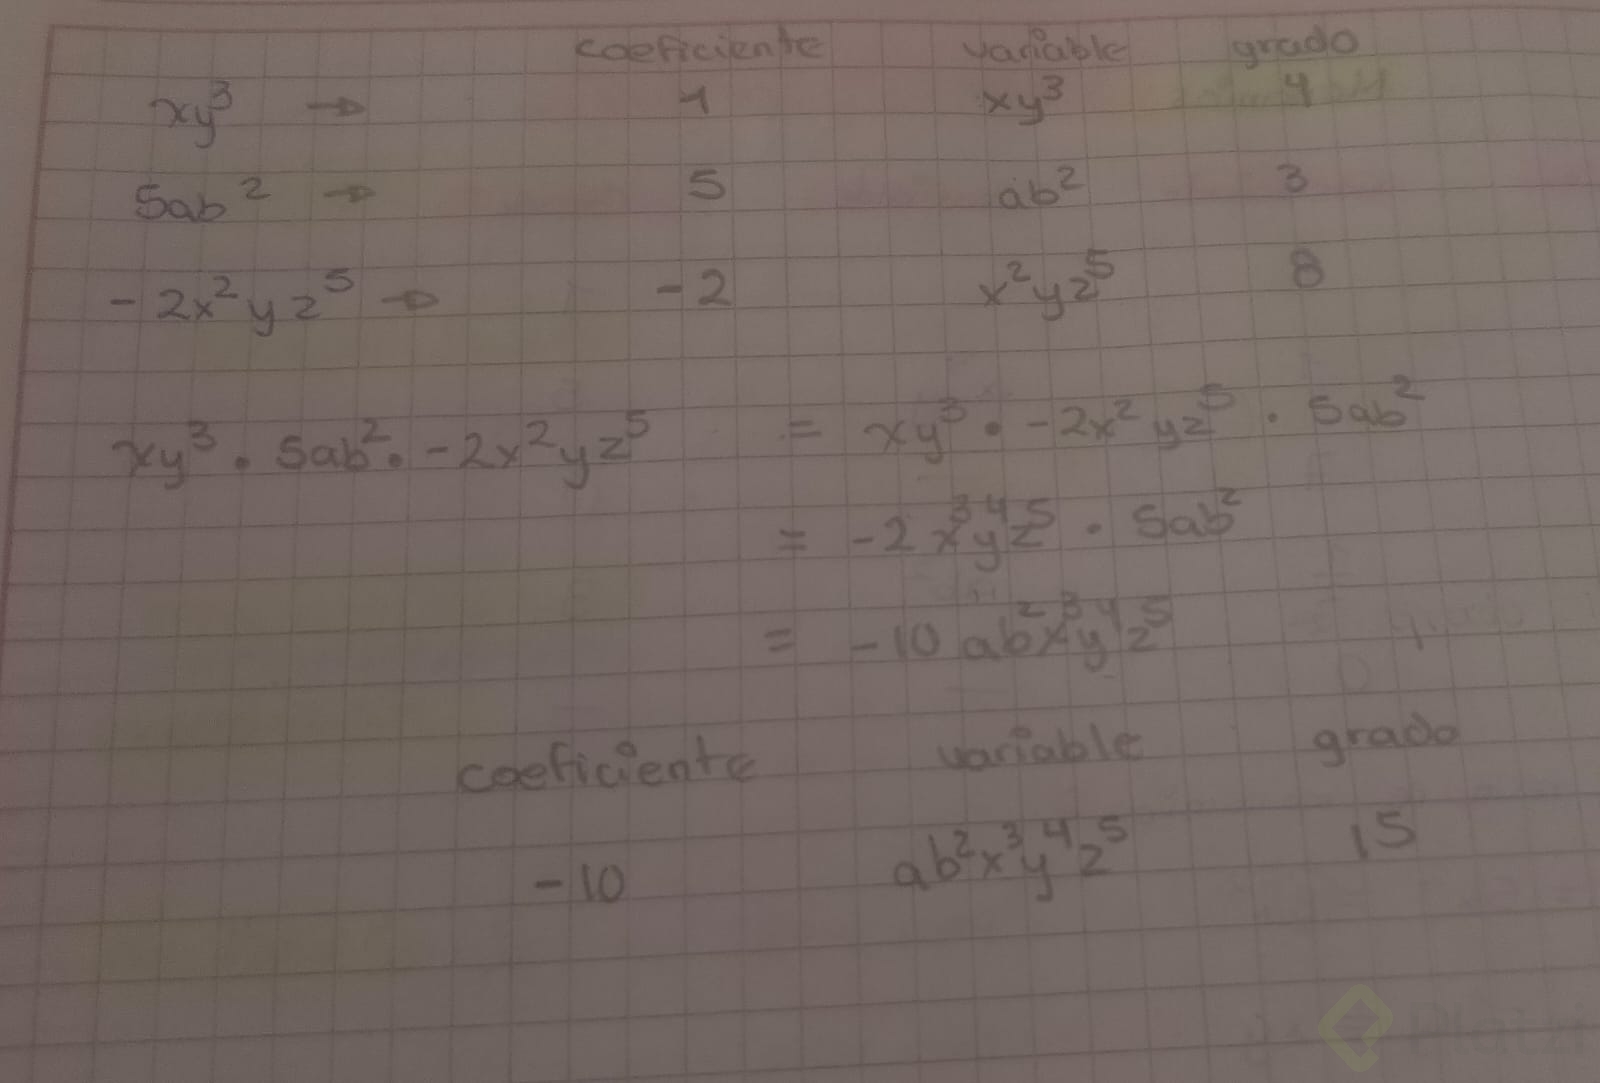 coeficiente variable grado
xy³ → 1 xy³ 4
5ab² → 5 ab² 3
-2x²yz⁵ → -2 x²yz⁵ 8
xy³ · 5ab² · -2x²yz⁵ = xy³ · -2x²yz⁵ · 5ab²
= -2x³y⁴z⁵ · 5ab²
= -10ab²x³y⁴z⁵
coeficiente variable grado
-10 ab²x³y⁴z⁵ 15
Platzi